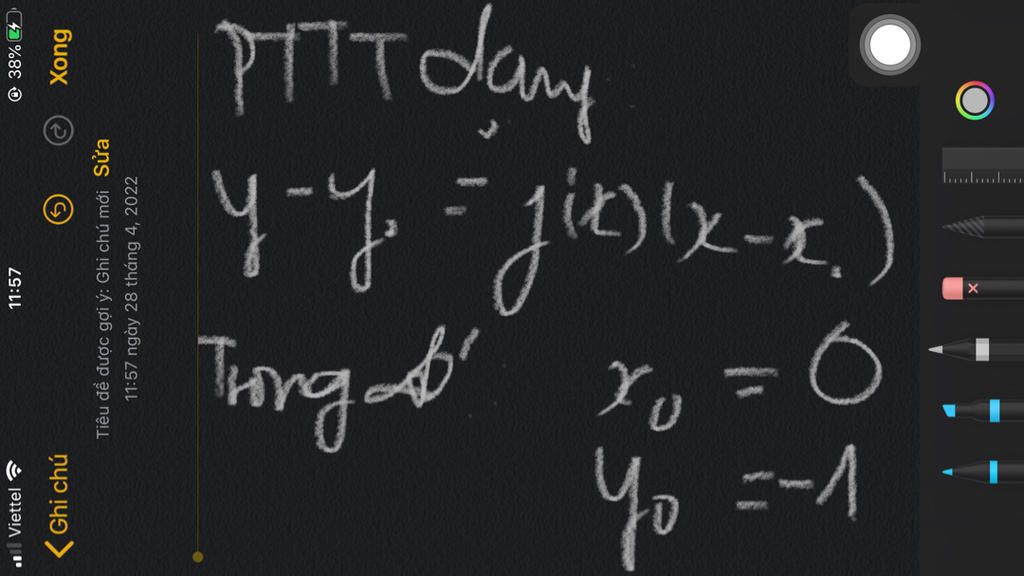 Viettel
11:57
38%
Ghi chú
Xong
Tiêu đề được gợi ý: Ghi chú mới Sửa
11:57 ngày 28 tháng 4, 2022
PTTT dạng
y - y₀ = y'(x)(x - x₀)
Trong đó x₀ = 0
y₀ = -1